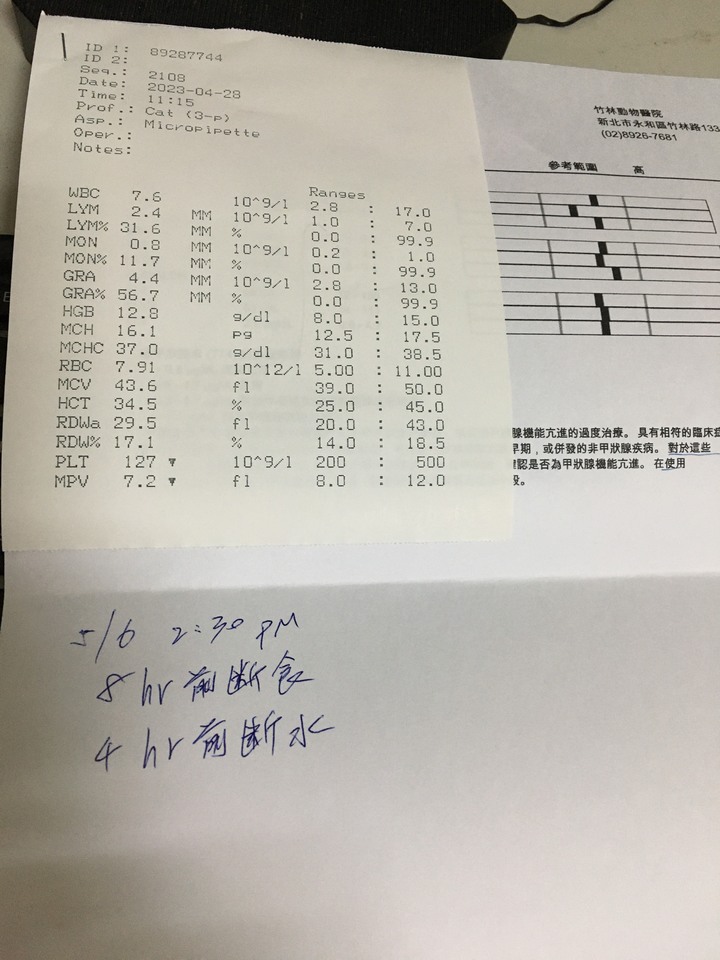 ID 1: 89287744
ID 2:
Seq.: 2108
Date: 2023-04-28
Time: 11:15
Prof.: Cat (3-p)
Asp.: Micropipette
Oper.:
Notes:
Ranges
WBC 7.6 10^9/l 2.8 : 17.0
LYM 2.4 MM 10^9/l 1.0 : 7.0
LYM% 31.6 MM % 0.0 : 99.9
MON 0.8 MM 10^9/l 0.2 : 1.0
MON% 11.7 MM % 0.0 : 99.9
GRA 4.4 MM 10^9/l 2.8 : 13.0
GRA% 56.7 MM % 0.0 : 99.9
HGB 12.8 g/dl 8.0 : 15.0
MCH 16.1 pg 12.5 : 17.5
MCHC 37.0 g/dl 31.0 : 38.5
RBC 7.91 10^12/l 5.00 : 11.00
MCV 43.6 fl 39.0 : 50.0
HCT 34.5 % 25.0 : 45.0
RDWa 29.5 fl 20.0 : 43.0
RDW% 17.1 % 14.0 : 18.5
PLT 127 ▼ 10^9/l 200 : 500
MPV 7.2 ▼ fl 8.0 : 12.0
竹林動物醫院
新北市永和區竹林路133
(02)8926-7681
參考範圍 高
腺機能亢進的過度治療。具有相符的臨床症
早期，或併發的非甲狀腺疾病。對於這些
確認是否為甲狀腺機能亢進。在使用
5/6 2:30 PM
8 hr 前断食
4 hr 前断水